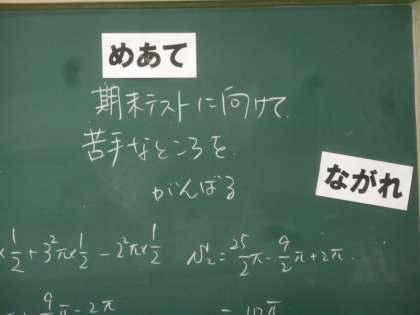 めあて
期末テストに向けて
苦手なところを
がんばる
ながれ
×1/2+3²π×1/2-2²π×1/2
=25/2π-9/2π+2π